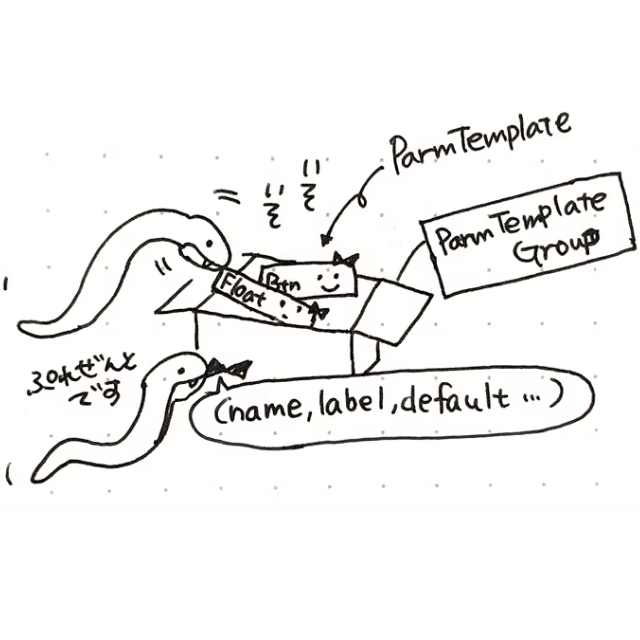 ParmTemplate
いそ いそ
ParmTemplate
Group
Btn
Float
ぷれぜんと
です
(name, label, default ...)